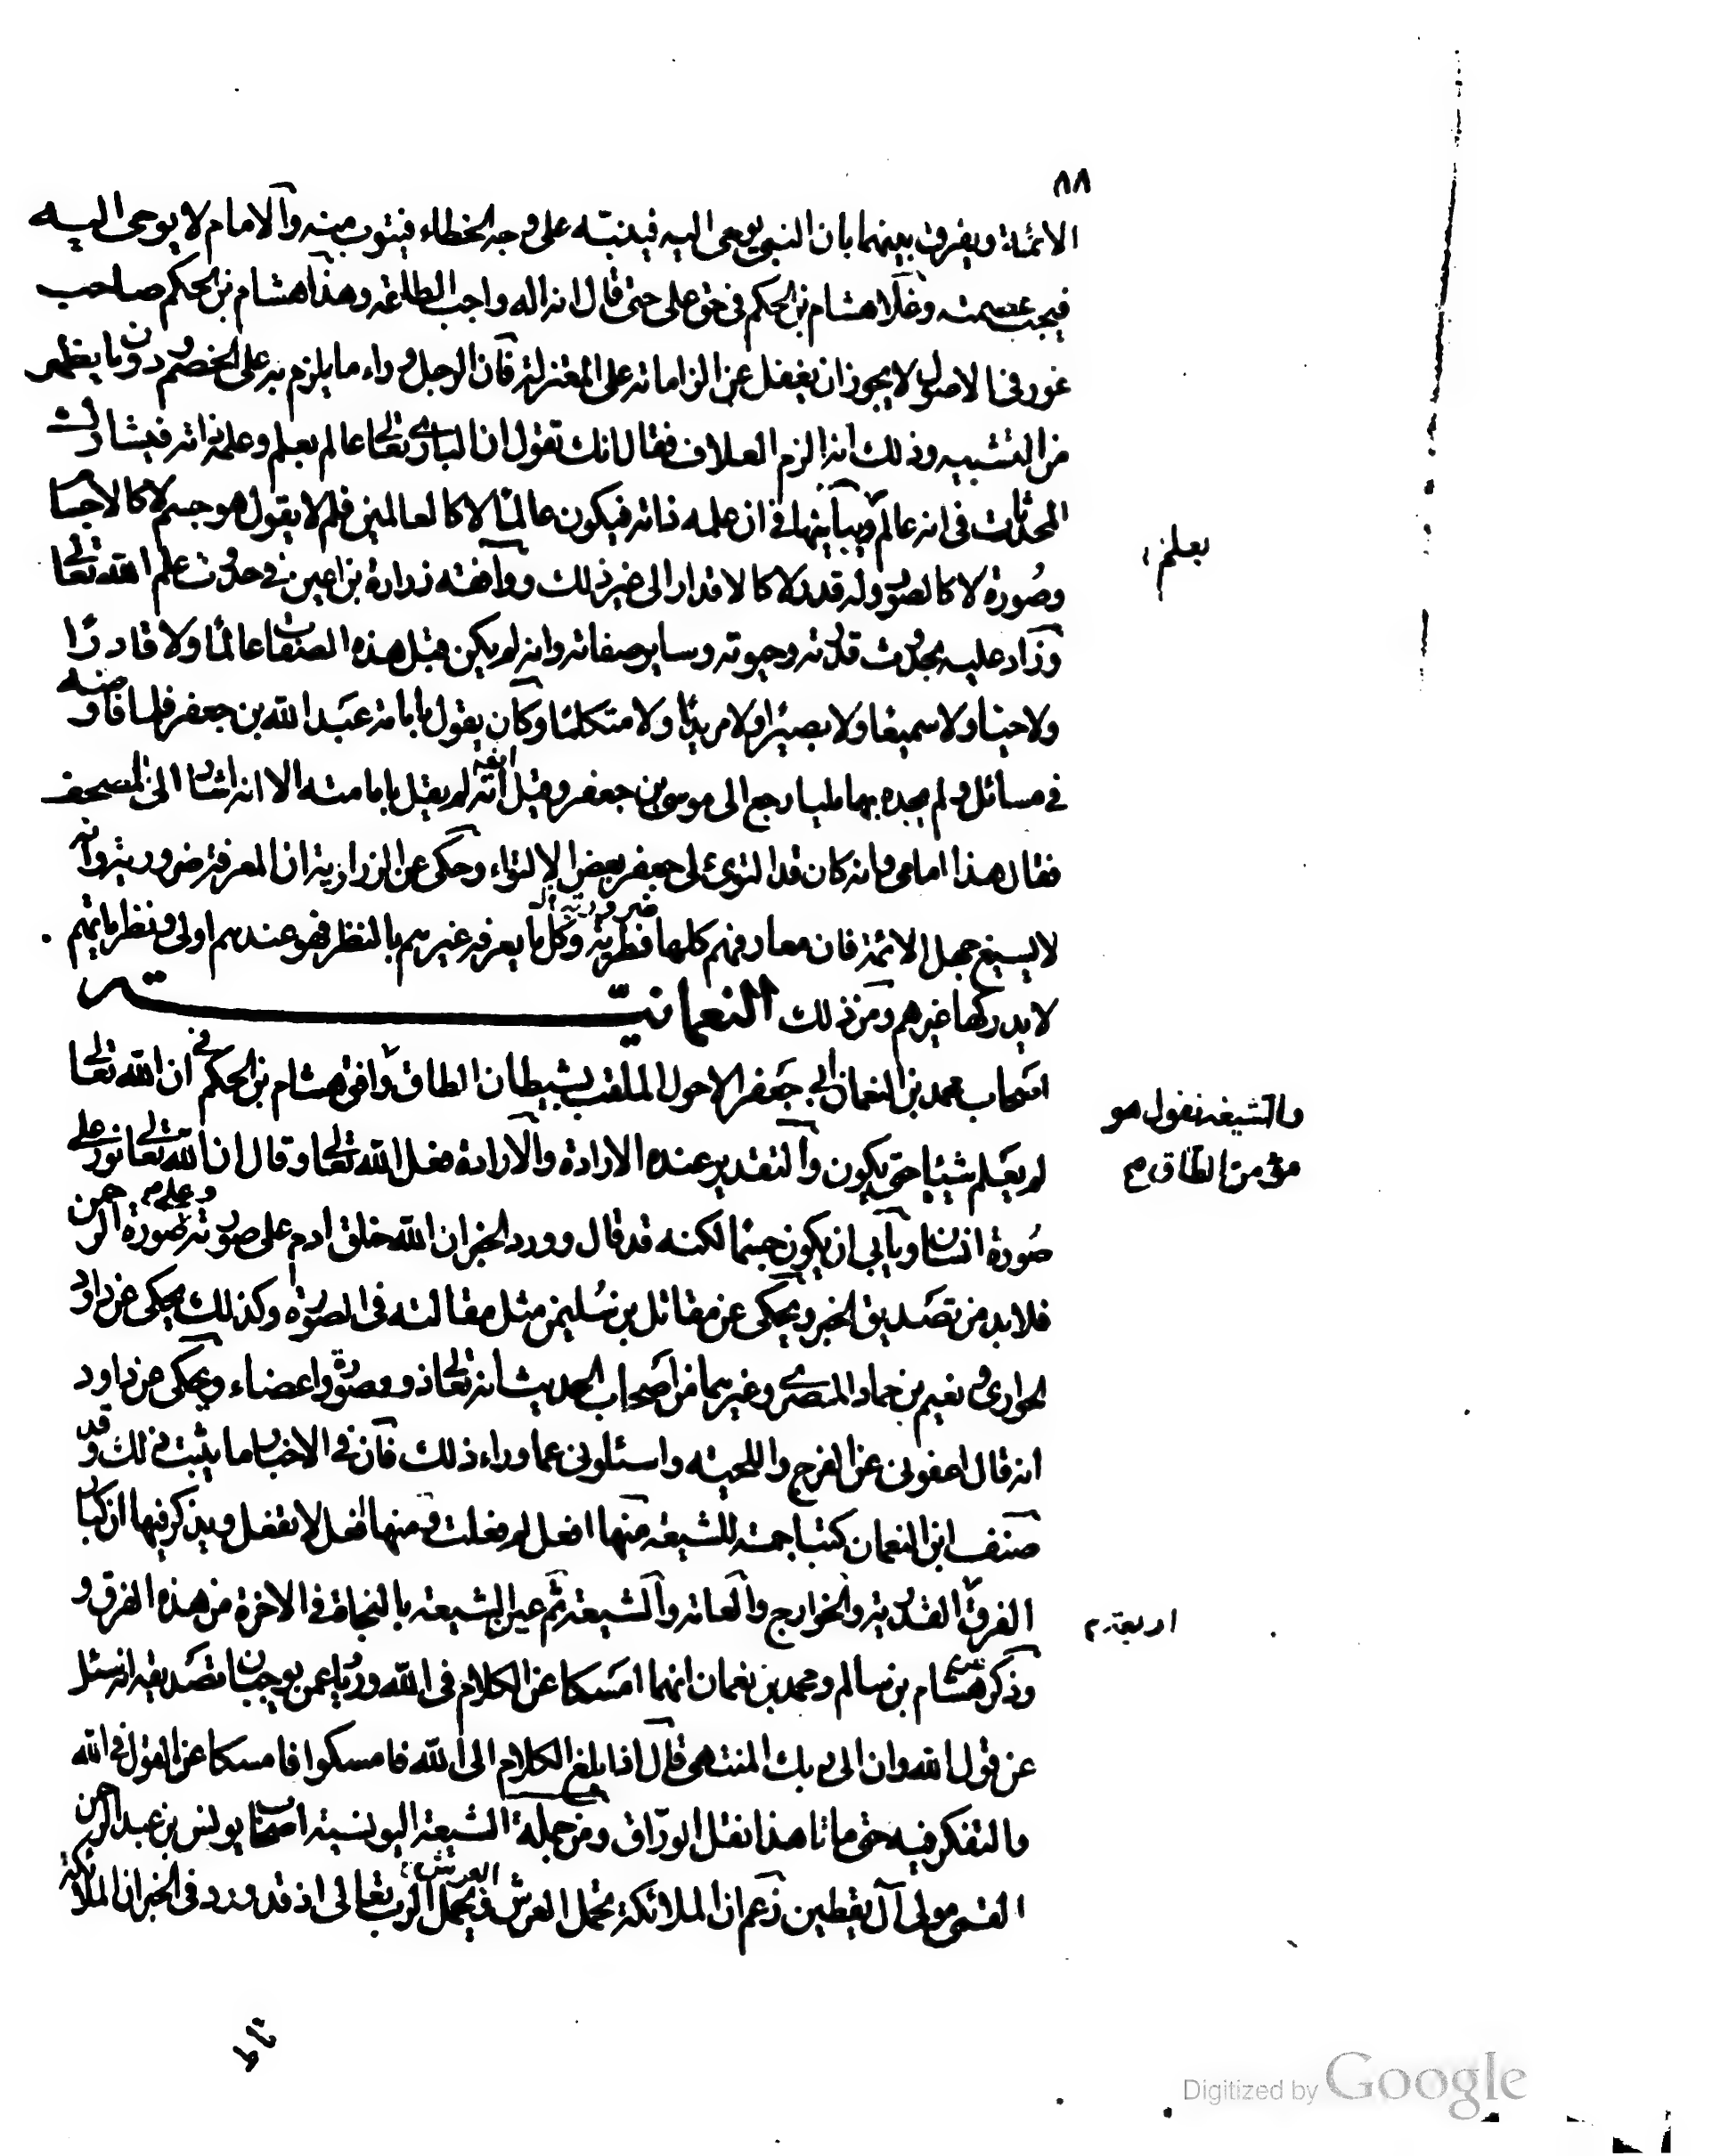 ٨٨
الائمة ويفرق بينهما بان النبي يوحى اليه فينبه على وجه الخطاء فيتوب منه والامام لا يوحى اليه
فيجب عصمته وغلا هشام بن الحكم في حق على حتى قال انه اله واجب الطاعة وهذا هشام بن الحكم صاحب
غور في الاصول لا يجوز ان يغفل عن الزاماته على المعتزلة فان الرجل وراء ما يلزم به على الخصم ودون ما يظهر
من التشبيه وذلك انه الزم العلاف فقال انك تقول ان البارى تعالى عالم بعلم وعلمه ذاته فيشارك
المحدثات في انه عالم ويباينها في ان علمه ذاته فيكون عالما لا كالعالمين فلم لا يقول هو جسم لا كالاجسام
بعلم
وصورة لا كالصور وله قدر لا كالاقدار الى غير ذلك ووافقه زرارة بن اعين في حدوث علم الله تعالى
وزاد عليه بحدوث قدرته وحيوته وساير صفاته وانه لم يكن قبل هذه الصفات عالما ولا قادرا
ولا حيا ولا سميعا ولا بصيرا ولا مريدا ولا متكلما وكان يقول بامامة عبد الله بن جعفر فلما فاوضه
في مسائل ولم يجده بها مليا رجع الى موسى بن جعفر وقيل ايضا انه لم يقل بامامته الا انه اشار الى المصحف
فقال هذا امامى وانه كان قد التوى على جعفر بعض الالتواء وحكى عن الزرارية ان المعرفة ضرورية وانه
لا يسيغ جهل الائمة فان معارفهم كلها فطرية ضرورية وكل ما يعرفه غيرهم بالنظر فهو عندهم اولى ونظرياتهم
لا يدركها غيرهم ومن ذلك النعمانية
اصحاب محمد بن النعمان ابي جعفر الاحول الملقب بشيطان الطاق وافق هشام بن الحكم في ان الله تعالى
والشيعة تقول هو
مؤمن الطاق ص
لم يعلم شيئا حتى يكون والتقدير عنده الارادة والارادة فعل الله تعالى وقال ان الله تعالى نور على
صورة انسان ويابى ان يكون جسما لكنه قد قال وورد الخبر ان الله خلق ادم على صورته وعلى صورة الرحمن
فلا بد من تصديق الخبر ويحكى عن مقاتل بن سليمن مثل مقالته في الصورة وكذلك يحكى عن داود
الحوارى ونعيم بن حماد المصرى وغيرهما من اصحاب الحديث انه تعالى ذو صورة واعضاء ويحكى عن داود
انه قال اعفونى عن الفرج واللحية واسئلونى عما وراء ذلك فان في الاخبار ما يثبت ذلك وقد
صنف ابن النعمان كتبا جمة للشيعة منها افعل لم فعلت ومنها افعل لا تفعل ويذكر فيها ان كبار
الفرق القدرية والخوارج والعامة والشيعة ثم عين الشيعة بالنجاة في الاخرة من هذه الفرق و
اربعة م
وذكر عن هشام بن سالم ومحمد بن نعمان انهما امسكا عن الكلام في الله ورويا عمن يوجبان تصديقه انه سئل
عن قول الله وان الى ربك المنتهى قال اذا بلغ الكلام الى الله فامسكوا فامسكا عن القول في الله
والتفكر فيه حتى ماتا هذا نقل الوراق ومن جملة الشيعة اليونسية اصحاب يونس بن عبد الرحمن
القمى مولى آل يقطين زعم ان الملائكة تحمل العرش والعرش يحمل الرب تعالى اذ قد ورد في الخبر ان الملائكة
تاط
Digitized by Google